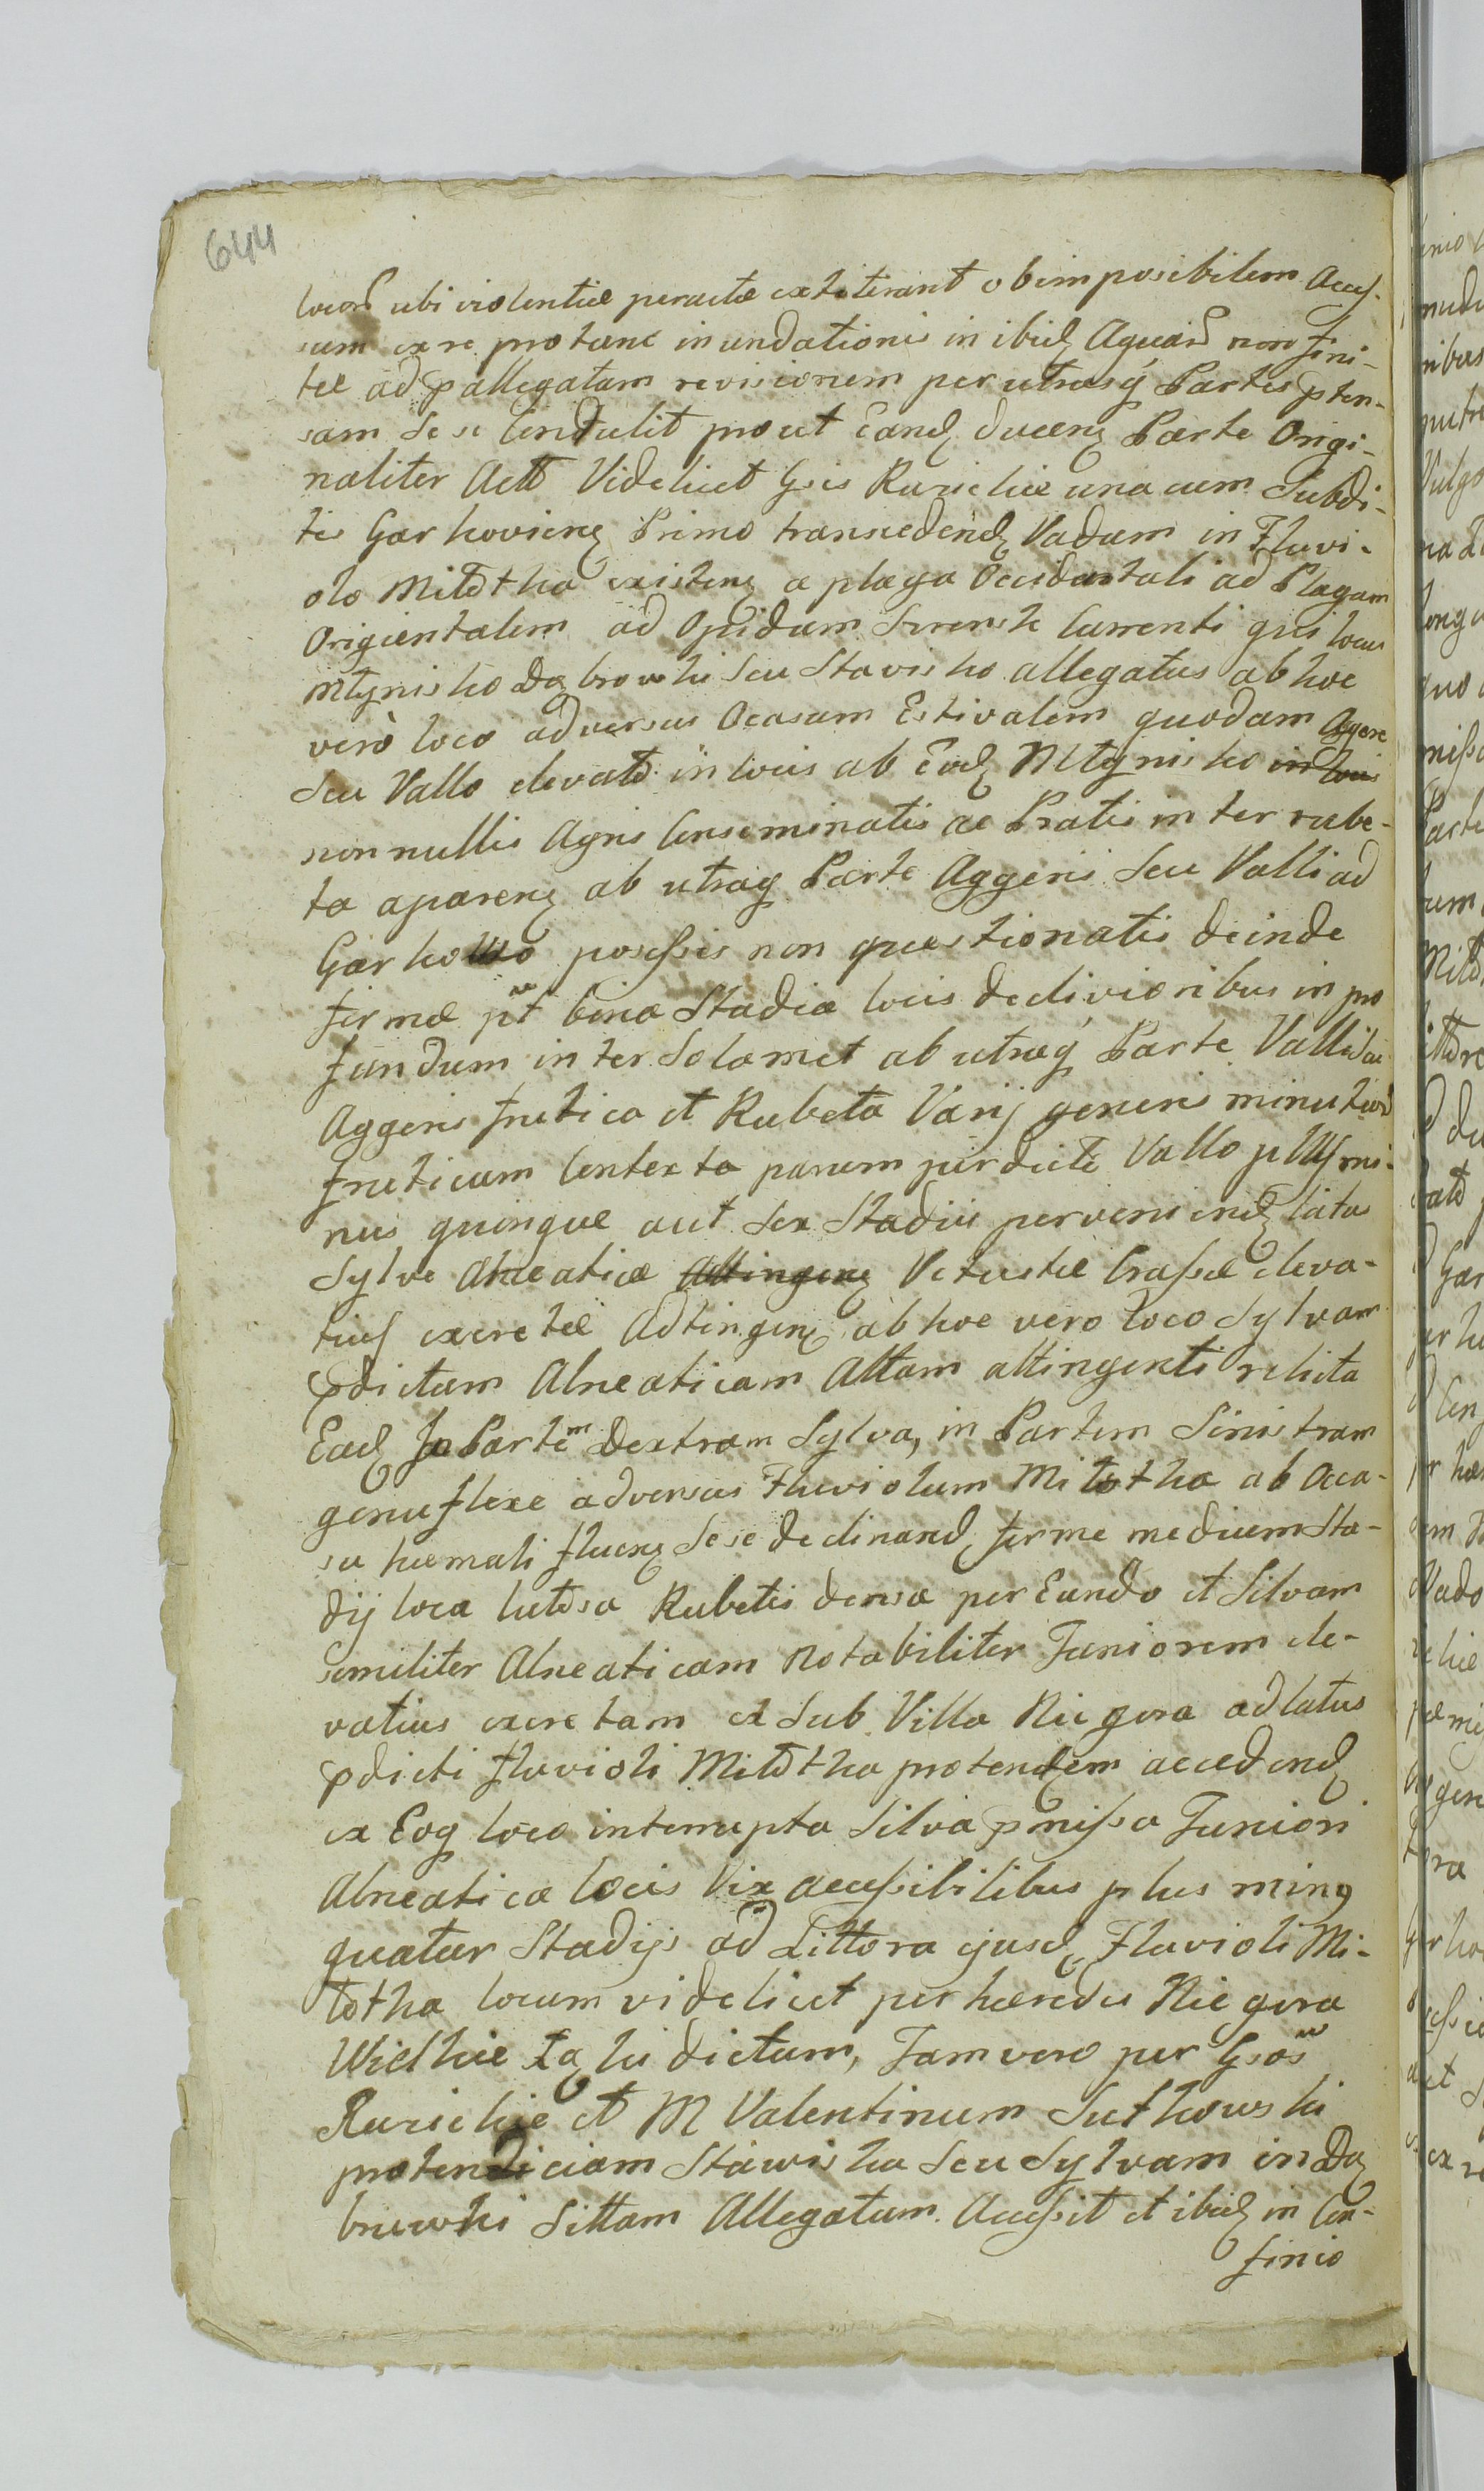 644
locorū ubi violentiæ peractæ extiterant ob imposibilem Acces-
sum ex re protunc inundationis in ibid Aquarū non fini-
tæ ad pallegatam revisionem per utrasq Partes pten-
sam Se se Contulit prout Eand ducen Parte Origi-
naliter Actt Videlicet Gsis Rusieckie una cum Subdi-
tis Garkovien Primo transedend Vadum in Fluvi-
olo Mitotka existen a plaga Occidentali ad Plagam
Origientalem ad Opidum Serensk Currenti qui locus
Młynisko Dąbrowki Seu Stavisko allegatus ab hoc
verò loco adversus Ocasum Estivalem quodam Aggere
Seu Vallo elevato in locis ab Eod Młynisko in locis
non nullis Agris Conseminatis ac Pratis inter rube-
ta aparen ab utraq Parte Aggeris Seu Valli ad
Garkowo possessis non questionatis deinde
fermæ pt bina Stadia locis declivioribus in pro
fundum inter Solamet ab utraq Parte Valli Seu
Aggeris frutica et Rubeta Varij generis minutiorū
fruticum Contexta parum perdicti Vallo plus mi-
nus quinque aut Sex Stadiis perveniend latus
Sylve Alneaticæ Attingen Vetustæ Crassæ eleva-
tius excretæ Adtingen ab hoc vero loco Sylvam
pdictam Alneaticam Altam attingenti relicta
Ead In Partem Dextram Sylva, in Partem Sinistram
genuflexe adversus Fluviolum Mitotka ab Occa-
su hiemali fluen Sese declinand ferme medium Sta-
dij loca lutosa Rubetis densa per Eundo et Silvam
similiter Alneaticam Notabiliter Juniorem ele-
vatius excretam et Sub Villa Niegora ad latus
pdicti fluvioli Mitotka protendem accedend
ex Eoq loco interrupta Silva pmissa Juniori
Alneatica locis Vix accessibilibus plus minq
quatur Stadijs ad Littora ejusd Fluvioli Mi-
totka locum videlicet per hæredes Niegora
Wielkie Łąki dictum, Jam vero per Gsos
Rusieckie et M Valentinum Sutkowski
protendiciam Stawiska Seu Sylvam in Dą
bruwki Sittam Allegatum. Accessit et ibid in Con-
finio